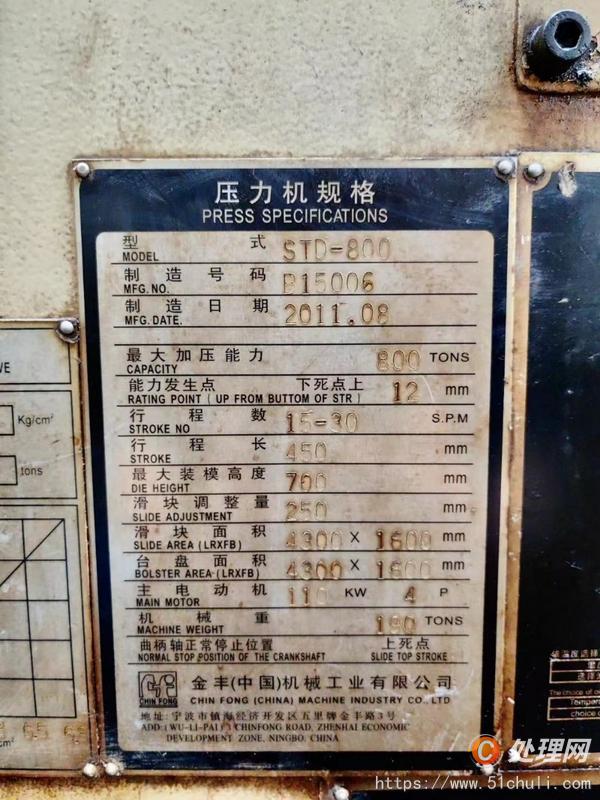 压力机规格
PRESS SPECIFICATIONS
型式 STD-800
MODEL
制造号码 P15006
MFG.NO.
制造日期 2011.08
MFG.DATE.
最大加压能力 800 TONS
CAPACITY
能力发生点 下死点上 12 mm
RATING POINT (UP FROM BUTTOM OF STR)
行程数 15-30 S.P.M
STROKE NO
行程长 450 mm
STROKE
最大装模高度 700 mm
DIE HEIGHT
滑块调整量 250 mm
SLIDE ADJUSTMENT
滑块面积 4300 X 1600 mm
SLIDE AREA (LRXFB)
台盘面积 4300 X 1600 mm
BOLSTER AREA (LRXFB)
主电动机 110 KW 4 P
MAIN MOTOR
机械重 TONS
MACHINE WEIGHT
曲柄轴正常停止位置 上死点
NORMAL STOP POSITION OF THE CRANKSHAFT SLIDE TOP STROKE
CHIN FONG
金丰(中国)机械工业有限公司
CHIN FONG (CHINA) MACHINE INDUSTRY CO.,LTD
地址: 宁波市镇海经济开发区五里牌金丰路3号
ADD: WU-LI-PAI CHINFONG ROAD, ZHENHAI ECONOMIC
DEVELOPMENT ZONE, NINGBO, CHINA
Kg/cm²
tons
处理网
https://www.51chuli.com